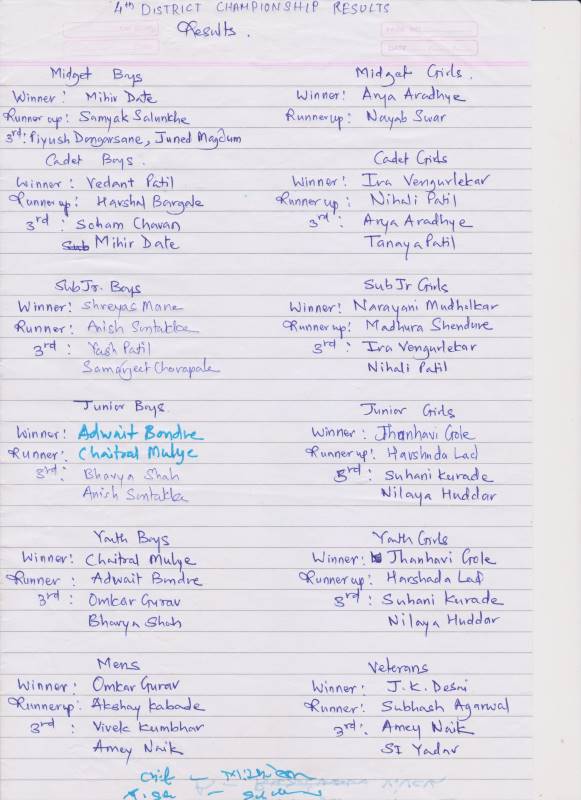 4th DISTRICT CHAMPIONSHIP RESULTS
Results.
Midget Boys
Winner: Mihir Date
Runner up: Samyak Salunkhe
3rd: Piyush Dongarsane, Juned Magdum
Cadet Boys.
Winner: Vedant Patil
Runner up: Harshal Bargale
3rd: Soham Chavan
Sub Mihir Date
Sub Jr. Boys
Winner: Shreyas Mane
Runner: Anish Sontakke
3rd: Yash Patil
Samarjeet Chorapale
Junior Boys.
Winner: Adwait Bondre
Runner: Chaitral Mulye
3rd: Bhavya Shah
Anish Sontakke
Youth Boys
Winner: Chaitral Mulye
Runner: Adwait Bondre
3rd: Omkar Gurav
Bhavya Shah
Mens
Winner: Omkar Gurav
Runner up: Akshay Kabade
3rd: Vivek Kumbhar
Amey Naik
Midget Girls.
Winner: Arya Aradhye
Runner up: Nayab Swar
Cadet Girls
Winner: Ira Vengurlekar
Runner up: Nihali Patil
3rd: Arya Aradhye
Tanaya Patil
Sub Jr Girls
Winner: Narayani Mudholkar
Runner up: Madhura Shendure
3rd: Ira Vengurlekar
Nihali Patil
Junior Girls
Winner: Jhanhavi Gole
Runner up: Harshada Lad
3rd: Suhani Kurade
Nilaya Huddar
Youth Girls
Winner: Jhanhavi Gole
Runner up: Harshada Lad
3rd: Suhani Kurade
Nilaya Huddar
Veterans
Winner: J.K. Desai
Runner: Subhash Agarwal
3rd: Amey Naik
SI Yadav